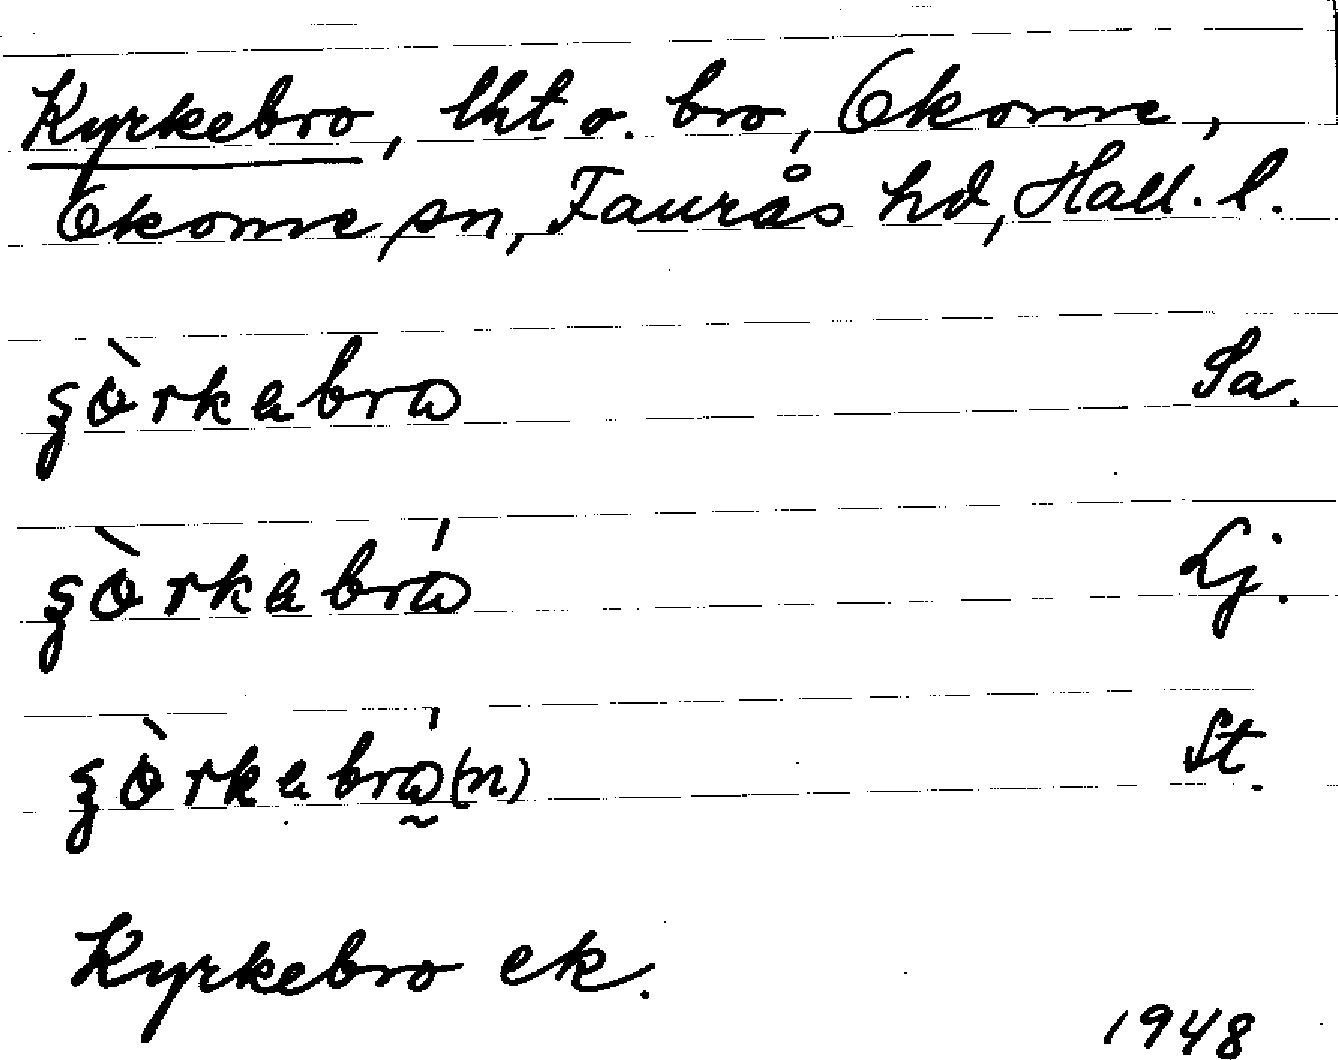 Kyrkebro, lht o. bro, Okome,
Okome sn, Faurås hd, Hall. l.
ʒɵ̀rkabrɷ Sa.
ʒɵ̀rkabrɷ́ Lj.
ʒɵ̀rkabrɷ̰́(n) St.
Kyrkebro ek.
1948